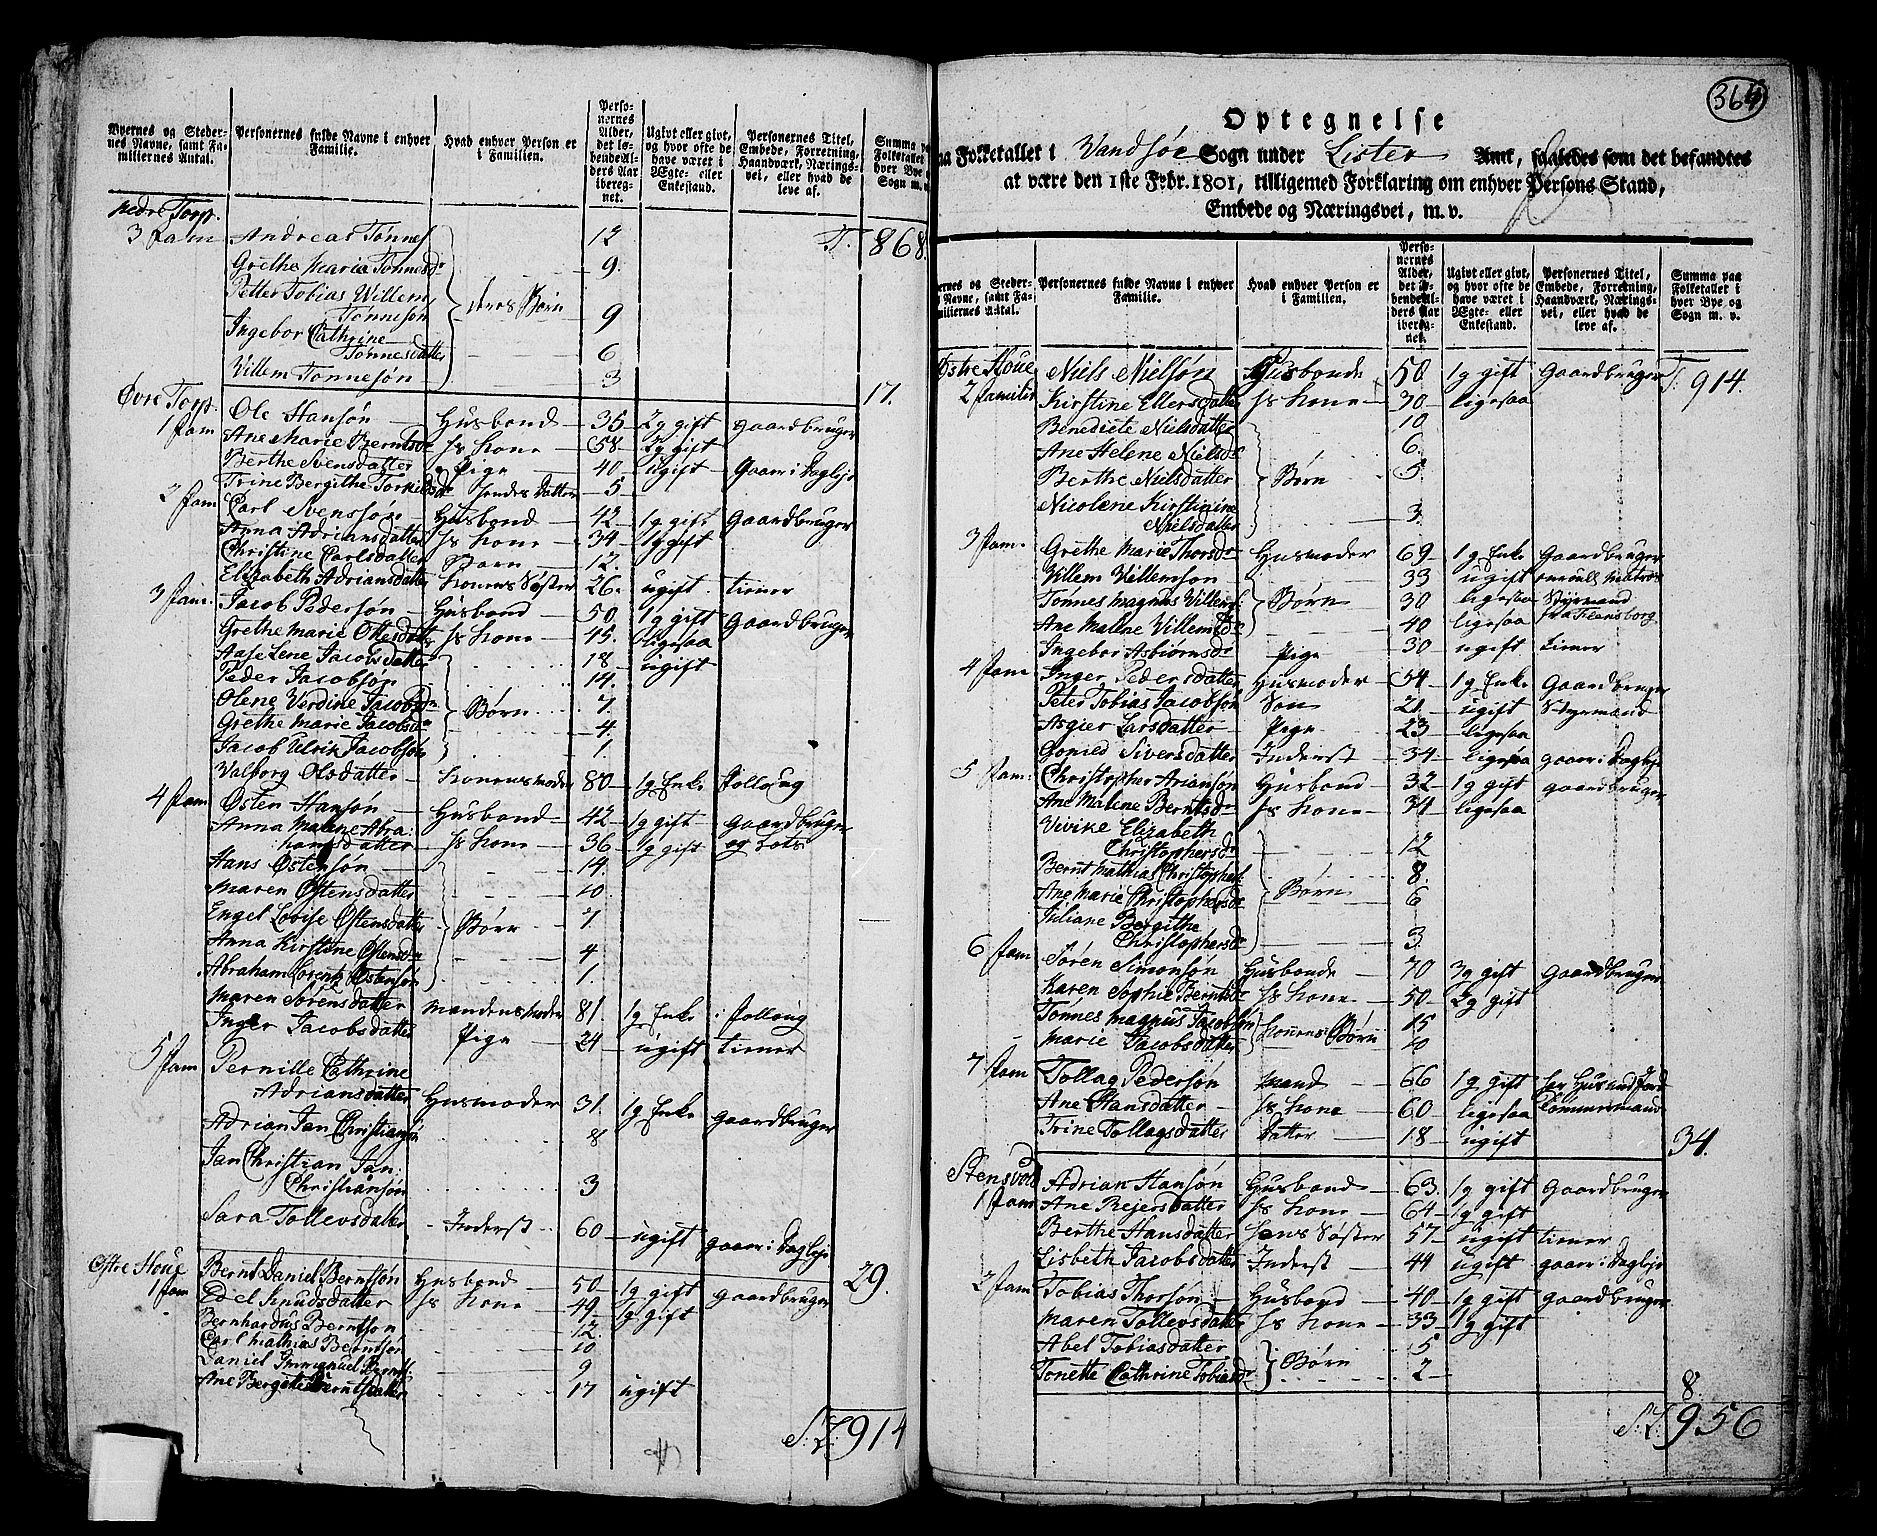 Byernes og Stedernes Navne, samt Familiernes Antal. | Personernes fulde Navne i enhver Familie. | Hvad enhver Person er i Familien. | Personernes Alder, det løbendeAlders Aar iberegnet. | Ugivt eller givt, og hvor ofte de have været i Ægte- eller Enkestand. | Personernes Titel, Embede, Forretning, Haandværk, Næringsvei, eller hvad de leve af. | Summa paa Folketallet i hver Bye og Sogn m. v.
nedre Torp.
3 fam Andreas Tønnes 12 T. 868
Grethe Maria Tønnesdr 9.
Petter Tobias Willem
Tønnesøn deres Børn 9
Ingebor Cathrine
Tønnesdatter 6
Villem Tønnesøn 3 17.
Øvre Torp.
1 fam Ole Hansøn Husbond 35 2g gift Gaardbruger
Ane Marie Berntsdr hs Kone 58 2g gift
Berthe Svensdatter Pige 40 ugift Gaar i Dagleje
Trine Bergithe Torkildsdr hendes Datter 5
2 fam Carl Svensson Husbond 42 1g gift Gaardbruger
Anna Adriansdatter hs Kone 34 1g gift
Christine Carlsdatter Barn 12.
Elizabeth Adriansdatter Konens Søster 26. ugift tiener
3 fam. Jacob Pedersøn Husbond 50 1g gift Gaardbruger
Grethe Marie Ottesdatter hs Kone 45. ligesaa
Aase Lene Jacobsdatter 18 ugift
Peder Jacobsøn 14.
Olene Verdine Jacobsdr Børn 7.
Grethe Marie Jacobsdr 4.
Jacob Ulrik Jacobsøn 1.
Valborg Olsdatter Konensmoder 80 1g Enke Følloug
4 fam Østen Hansøn Husbond 42 1g gift Gaardbruger
Anna Malene Abra:
hamsdatter hs Kone 36 1g gift og Lots
Hans Østensøn 14.
Maren Østensdatter 10
Engel Lovise Østensdatter Børn 7.
Anna Kirstine Østensdr 4
Abraham Lorentz Østensøn 1.
Maren Sørensdatter mandens moder 81. 1g Enke i Følloug
Inger Jacobsdatter Pige 24 ugift tiener
5 fam Pernille Cathrine
Adriansdatter Husmoder 31. 1g Enke Gaardbruger
Adrian Jan Christiansøn 8
Jan Christian Jan:
Christiansøn 3
Sara Tollevsdatter Inderst 60 ugift gaar i Dagleje 29.
Østre Houe
1 fam Bernt Daniel Berntsøn Husbond 50 1g gift gaardbruger
Edel Knudsdatter hs Kone 49 1g gift
Bernhardus Berntsøn 12.
Carl Mathias Berntsøn 10
Daniel Immanuel Bernts: 9
Ane Bergitte Berntsdatter 17 ugift
S. T. 914
364
Optegnelse
paa Folketallet i Vandsøe Sogn under Lister Amt, saaledes som det befandtes
at være den 1ste Febr. 1801, tilligemed Forklaring om enhver Persons Stand,
Embede og Næringsvei, m. v.
Byernes og Stedernes Navne, samt Familiernes Antal. | Personernes fulde Navne i enhver Familie. | Hvad enhver Person er i Familien. | Personernes Alder, det løbendeAlders Aar iberegnet. | Ugivt eller givt, og hvor ofte de have været i Ægte- eller Enkestand. | Personernes Titel, Embede, Forretning, Haandværk, Næringsvei, eller hvad de leve af. | Summa paa Folketallet i hver Bye og Sogn m. v.
Østre Houe Niels Nielsøn Husbonde 50 1g gift Gaardbruger T. 914.
2 familie Kirstine Ellersdatter hs Kone 30 ligesaa
Benedicte Nielsdatter 10
Ane Helene Nielsdr 6.
Berthe Nielsdatter Børn 5
Nicolene Kirstinine
Nielsdatter 3.
3 fam. Grethe Marie Thorsdr Husmoder 69 1g Enke Gaardbruger
Villem Villemsøn 33 ugift Matros
Tønnes Magnus Villems: Børn 30 ligesaa Styrmand
fra Flensborg
Ane Malene Villemsdr 40 ligesaa
Ingebor Asbiørnsdr Pige 30 ugift tiener
4 fam Inger Pedersdatter Husmoder 54 1g Enke Gaardbruger
Peter Tobias Jacobsøn Søn 21. ugift Styrmand
Asgier Larsdatter Pige 23 ligesaa
Gonild Siversdatter Inderst 34 ligesaa gaar i Dagleje
5 fam: Christopher Ariansøn Husbond 32 1g gift gaardbruger
Ane Malene Berntsdr hs Kone 34 ligesaa
Vivike Elizabeth
Christophersdr 12
Bernt Mathias Christophers: 8.
Ane Marie Christophersdr Børn 6
Juliane Bergithe
Christophersdr 3.
6 fam Søren Simonsøn Husbonde 70 3g gift Gaardbruger
Karen Sophie Berntsdr hs Kone 50 2g gift
Tønnes Magnus Jacobsøn Konens Børn 15
Marie Jacobsdatter 10
7 fam Tollag Pedersøn mand 66 1g gift har Huus and Jord
Ane Hansdatter hs Kone 60 ligesaa Tømmermand
Trine Tollagsdatter Datter 18 ugift 34.
Stensvold Adrian Hansøn Husbond 63. 1g gift Gaardbruger
1 fam Ane Reijersdatter hs Kone 64 1g gift
Berthe Hansdatter hans Søster 57 ugift tiener
Lisbeth Jacobsdatter Inderst 44 ugift gaar i Dagleje
2 fam Tobias Thorsøn Husbond 40 1g gift Gaardbruger
Maren Tollevsdatter hs Kone 33 1g gift
Abel Tobiasdatter 5
Tonette Cathrine Tobiasdr Børn 2 8.
S. T. 956